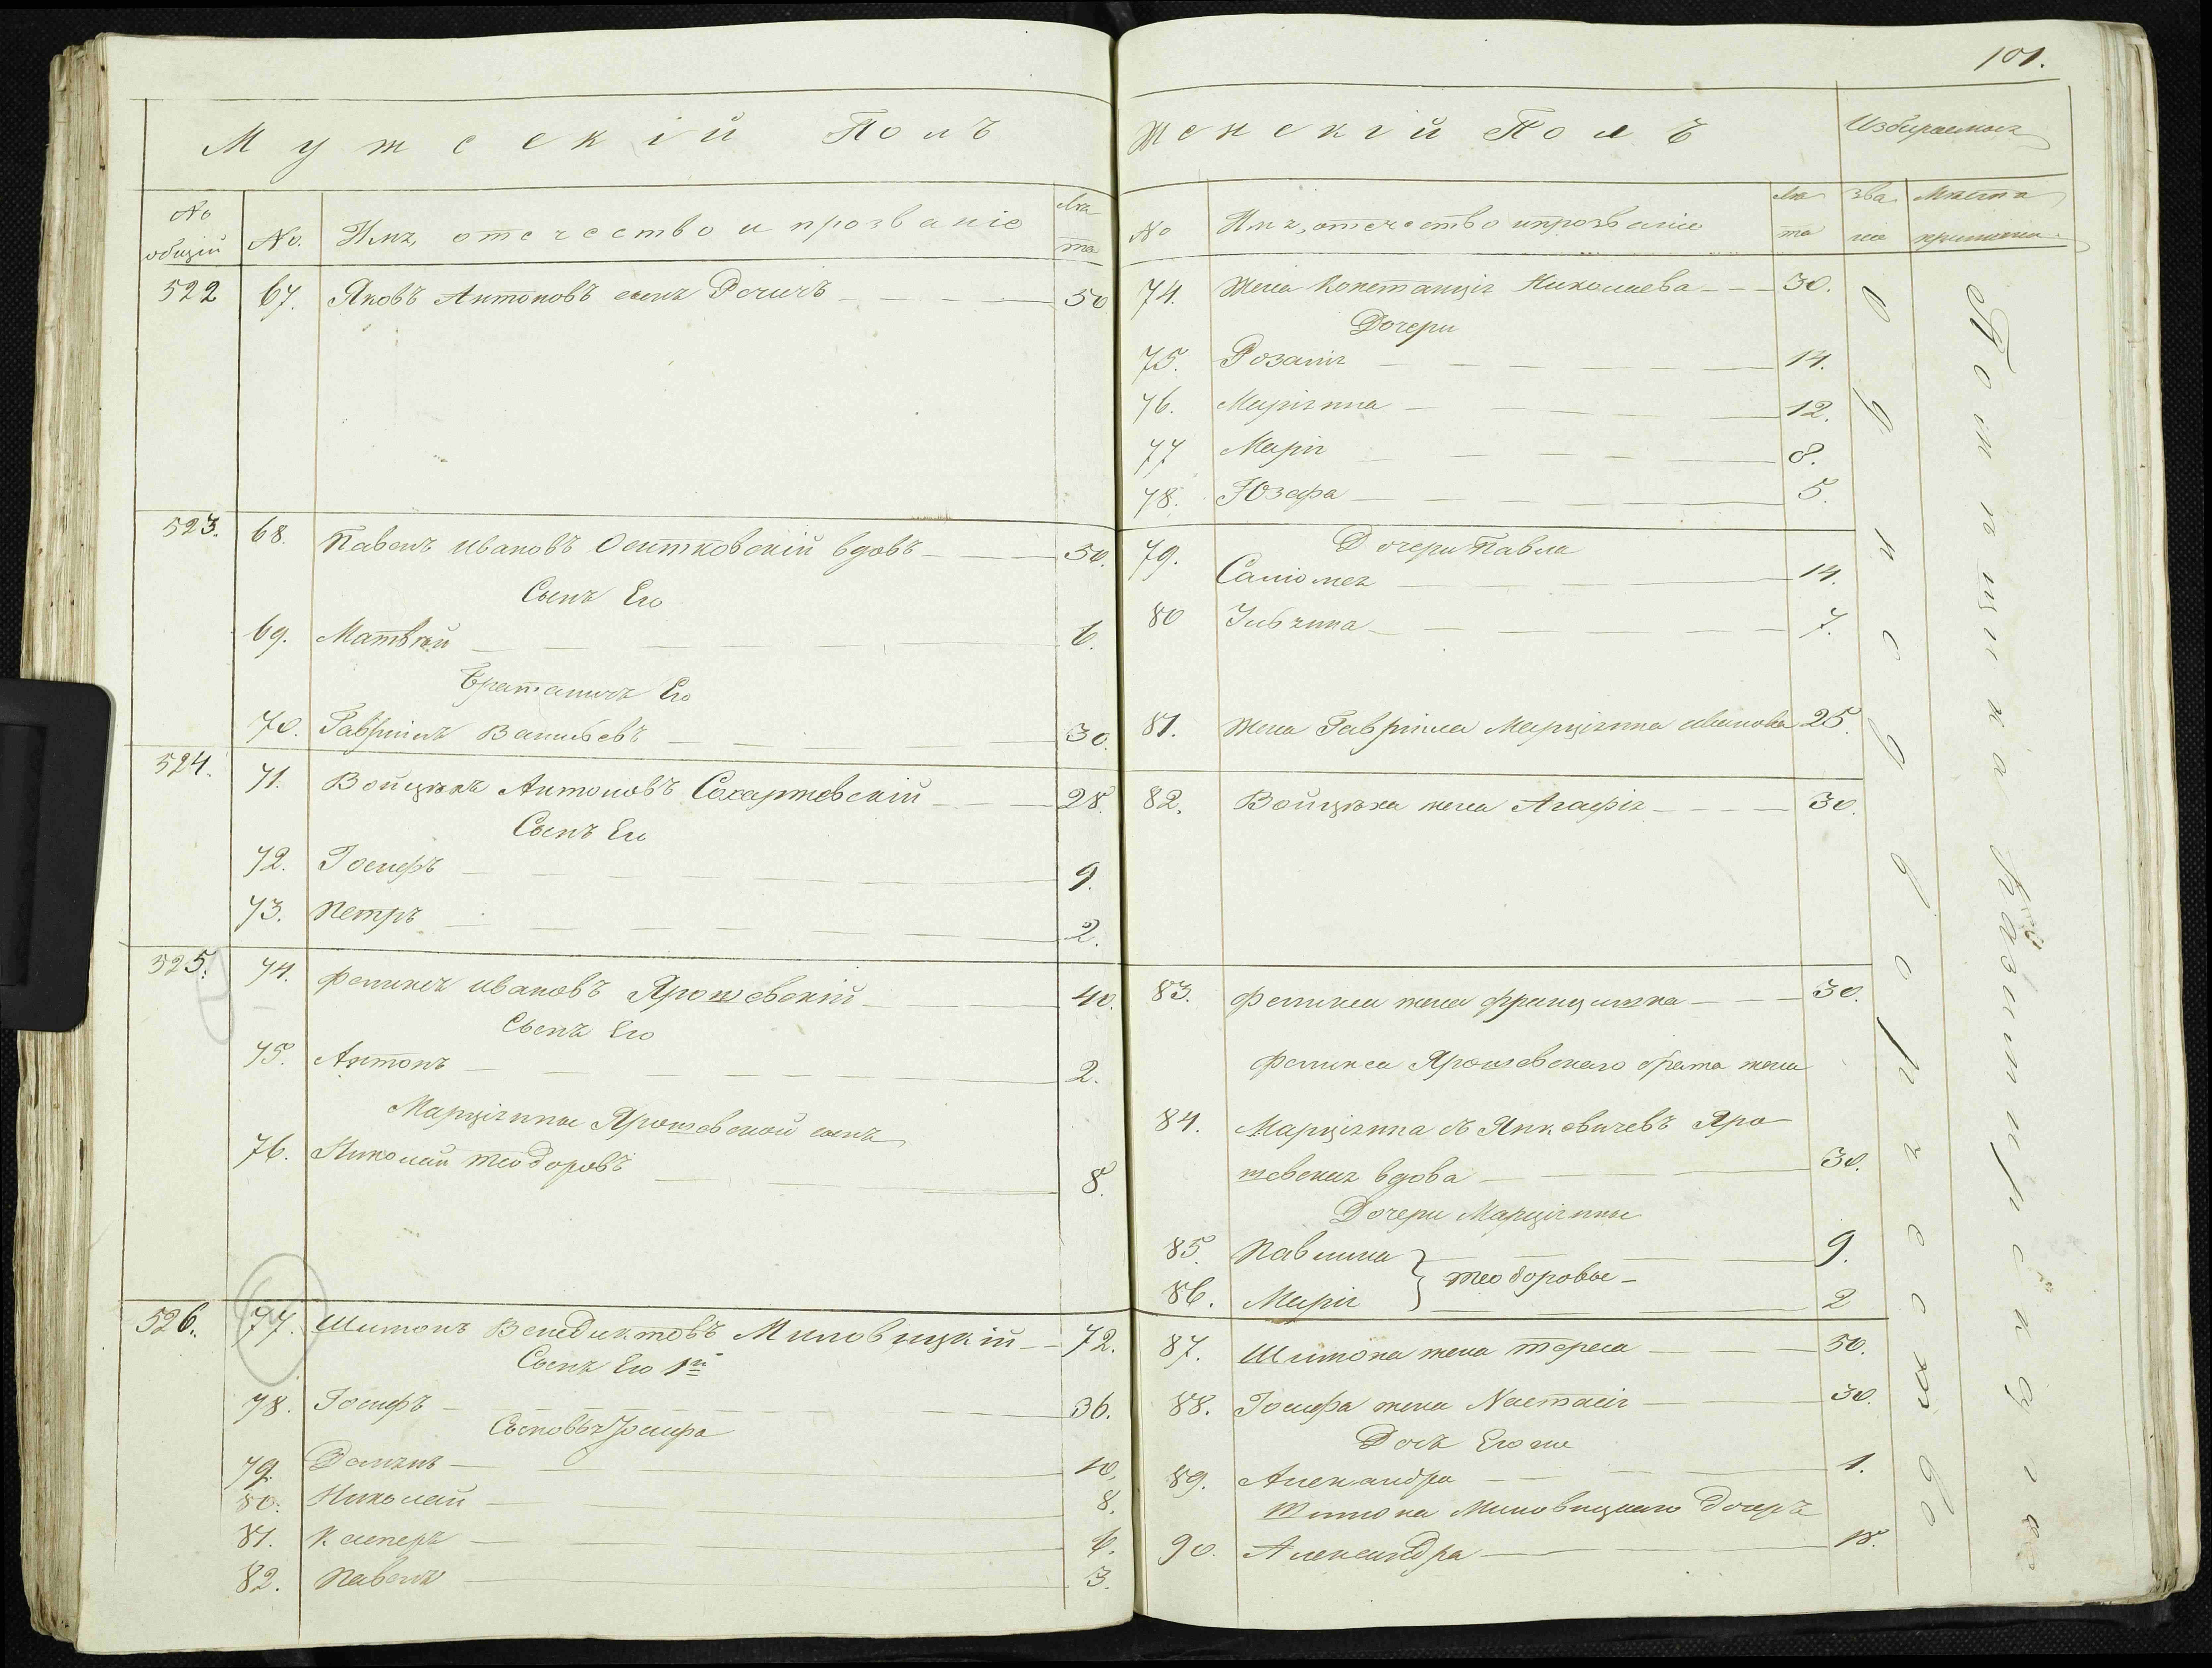 101.
Мужескій Полъ
№ общій
№.
Имя, отечество и прозваніе
Лѣта
522 67. Яковъ Антоновъ сынъ 50
523. 68. Павелъ Ивановъ Оситковскій вдовъ 50.
Сынъ Его
69. Матвѣй 6.
Братаничъ Его
70. Гавріилъ Васильевъ 30.
524. 71. Войцѣхъ Антоновъ 28.
Сынъ Его
72. Іосифъ 9.
73. Петръ 2.
525. 74. Феликсъ Ивановъ Ярошевскій 40.
Сынъ Его
75. Антонъ 2.
Марціянны Ярошевской сынъ
76. Николай Теодоровъ 8.
526. 77. Шимонъ Венедиктовъ Миловицкій 72.
Сынъ Его 1й
78. Іосифъ 36.
Сыновья Іосифа
79. Демьянъ 10.
80. Николай 8.
81. Касперъ 6.
82. Павелъ 3.
Женскій Полъ
Избираемыя
№
Имя, отечество и прозваніе
Лѣта
Званія
Мѣста
74. Жена Констанція Николаева 30.
Дочери
75. Розалія 14.
76. Маріянна 12.
77 Марія 8.
78. Юзефа 5.
Дочери Павла
79. Саломея 14.
80 Ульяна 7.
81. Жена Гавріила Марціянна Иванова 25.
82. Войцѣха жена Агафія 30.
83. Феликса жена Францишка 30.
Феликса Ярошевскаго брата жена
84. Марціянна съ Янкевичевъ Яро
шевская вдова 30.
Дочери Марціянны
85. Павлина } Теодоровы 9.
86. Марія 2
87. Шимона жена Тереса 50.
88. Іосифа жена Настасія 30.
Дочь Его же
89. Александра 1.
Шимона Миловицкаго дочерь
90. Александра 18.
Однодворческое